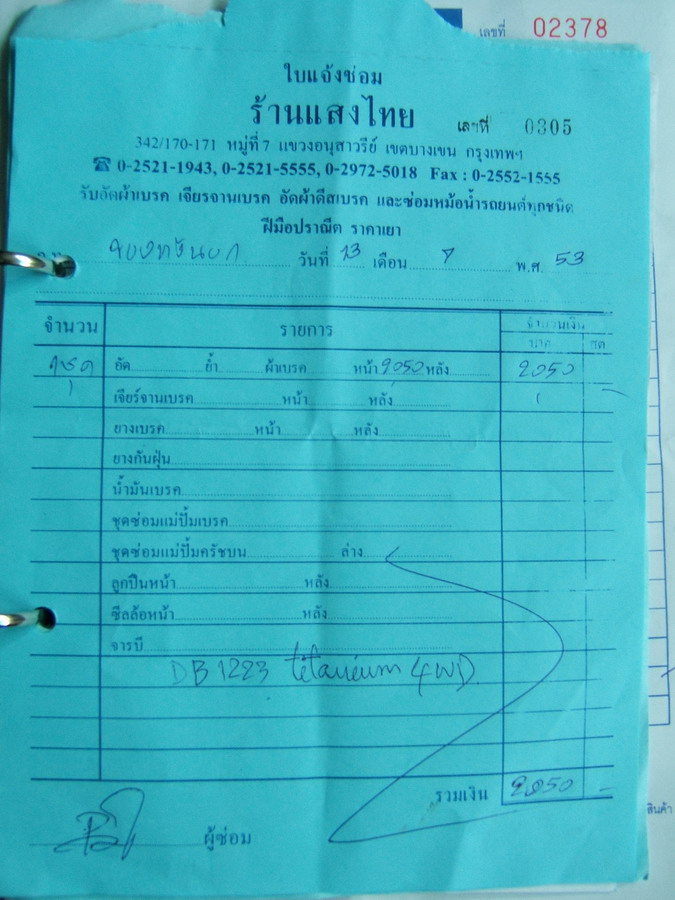 เลขที่ 02378
ใบแจ้งซ่อม
ร้านแสงไทย
เลขที่ 0305
342/170-171 หมู่ที่ 7 แขวงอนุสาวรีย์ เขตบางเขน กรุงเทพฯ
☎ 0-2521-1943, 0-2521-5555, 0-2972-5018 Fax : 0-2552-1555
รับอัดผ้าเบรค เจียรจานเบรค อัดผ้าดีสเบรค และซ่อมหม้อน้ำรถยนต์ทุกชนิด
ฝีมือปราณีต ราคาเยา
วันที่ 13 เดือน 7 พ.ศ. 53
จำนวน รายการ จำนวนเงิน
บาท สต
อัด ย้ำ ผ้าเบรค หน้า 2050 หลัง 2050
เจียร์จานเบรค หน้า หลัง
ยางเบรค หน้า หลัง
ยางกันฝุ่น
น้ำมันเบรค
ชุดซ่อมแม่ปั๊มเบรค
ชุดซ่อมแม่ปั๊มครัชบน ล่าง
ลูกปืนหน้า หลัง
ซีลล้อหน้า หลัง
จารบี
DB 1223 titanium 4WD
รวมเงิน 2050 -
ผู้ซ่อม
สินค้า